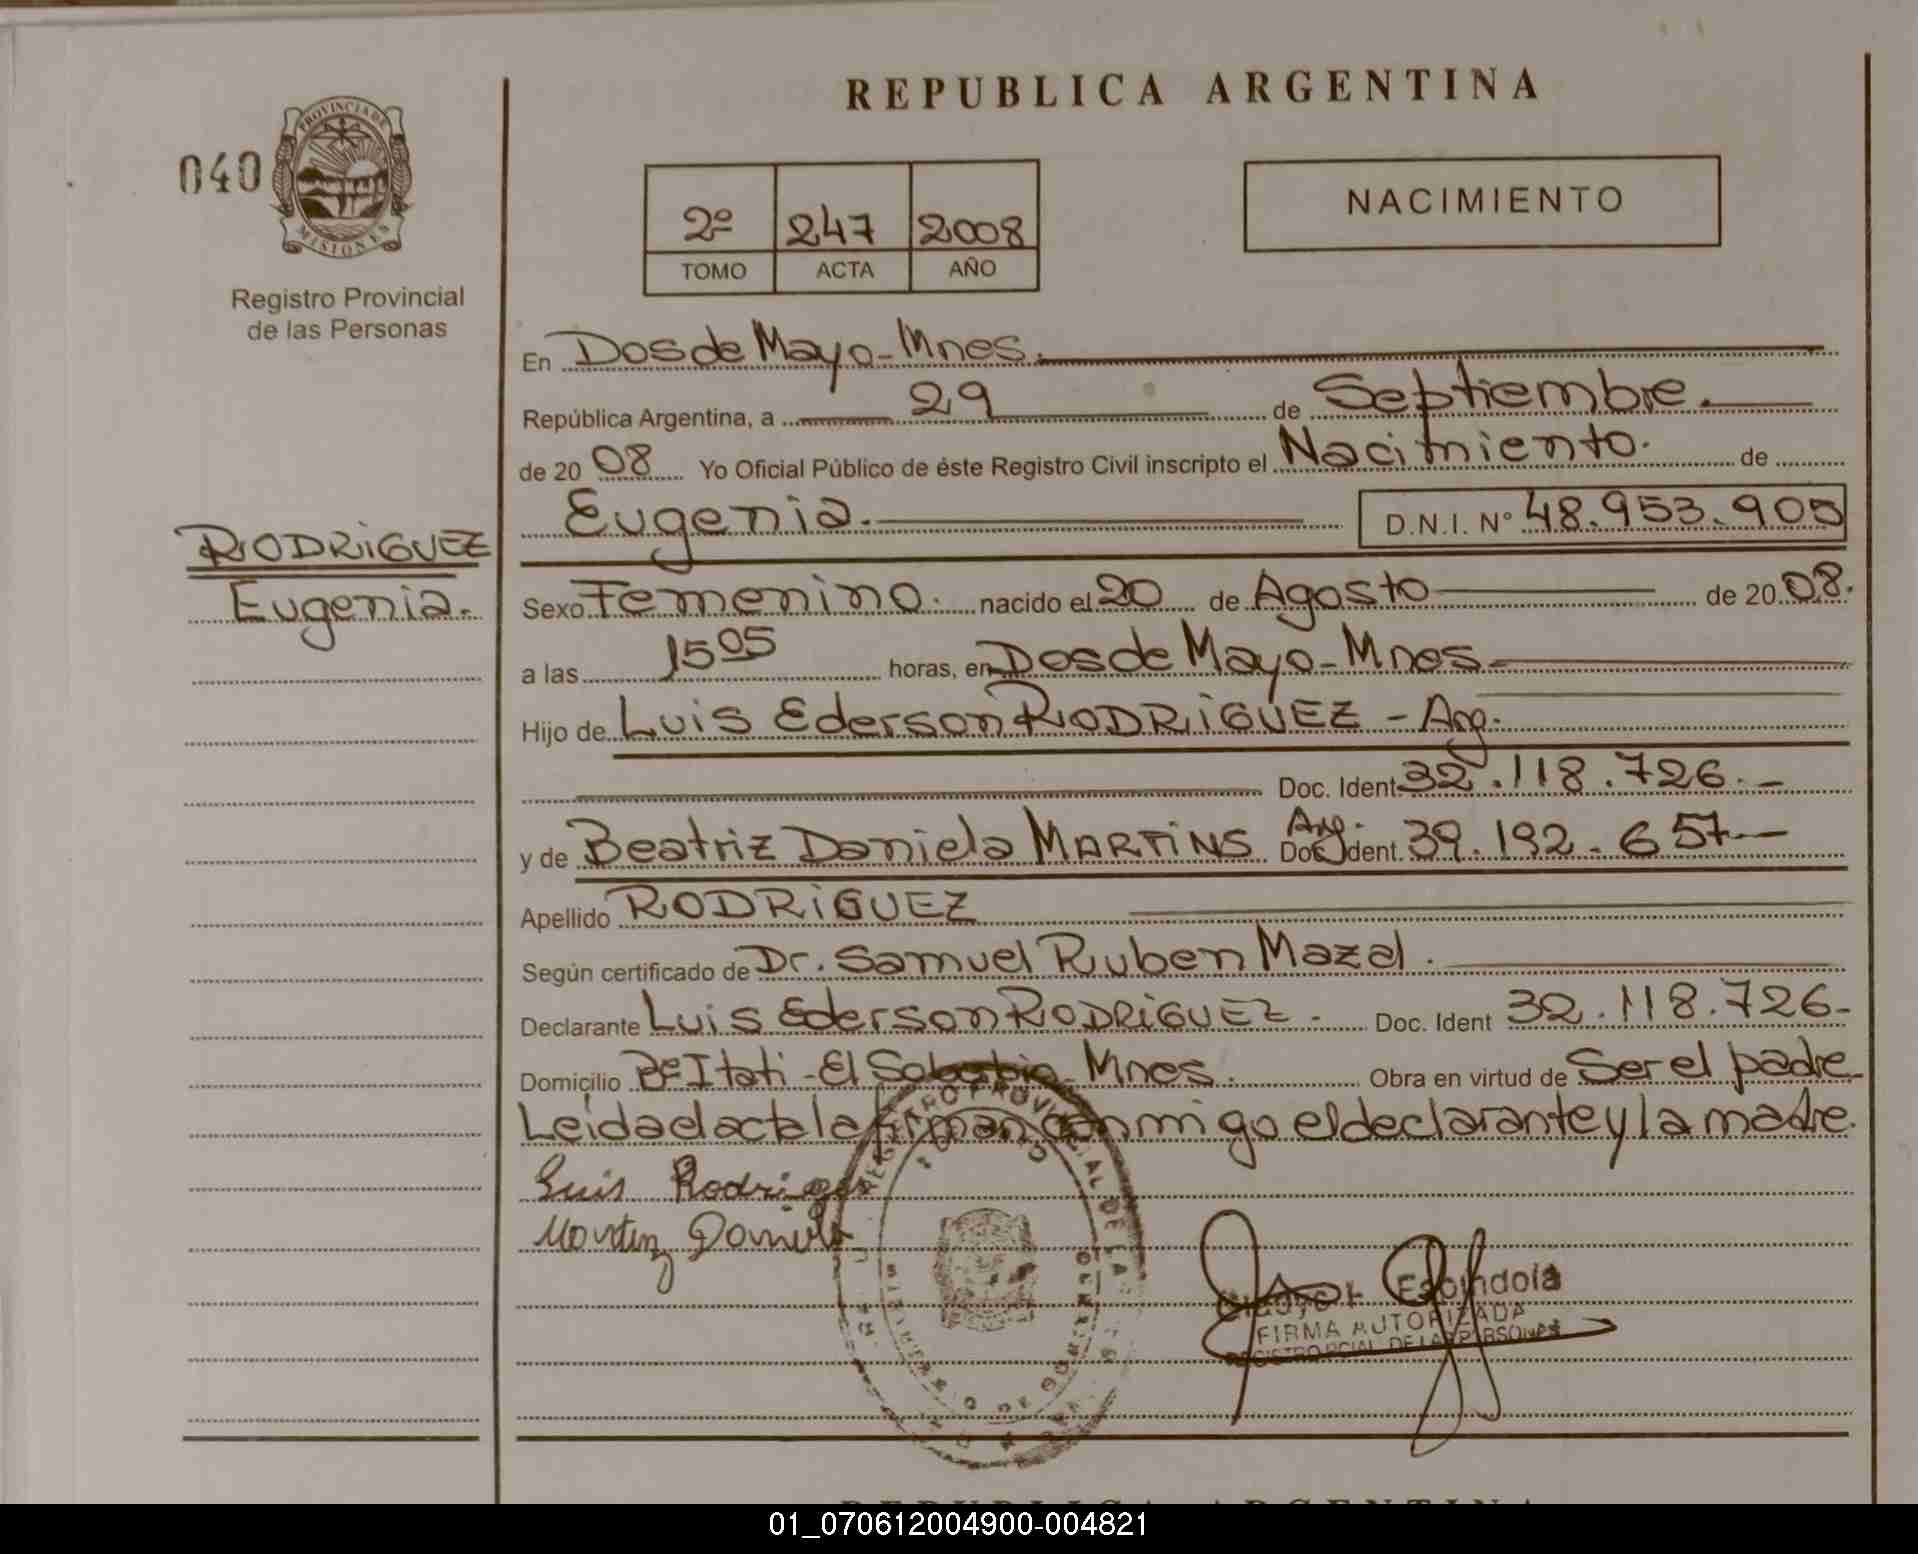 REPUBLICA ARGENTINA
040
PROVINCIA DE
MISIONES
Registro Provincial
de las Personas
2º 247 2008
TOMO ACTA AÑO
NACIMIENTO
En Dos de Mayo - Mnes.
República Argentina, a 29 de Septiembre.
de 2008 Yo Oficial Público de éste Registro Civil inscripto el Nacimiento. de
Eugenia. D.N.I. Nº 48.953.905
RODRIGUEZ
Eugenia.
Sexo Femenino. nacido el 20 de Agosto de 2008.
a las 15 05 horas, en Dos de Mayo - Mnes.
Hijo de Luis Ederson RODRIGUEZ - Arg.
Doc. Ident 32.118.726. -
y de Beatriz Daniela MARTINS Arg. Doc. Ident. 39.192.657 -
Apellido RODRIGUEZ
Según certificado de Dr. Samuel Ruben Mazal.
Declarante Luis Ederson RODRIGUEZ. Doc. Ident 32.118.726-
Domicilio Bº Itati - El Soberbio - Mnes. Obra en virtud de Ser el padre
Leida el acta la firman conmigo el declarante y la madre.
Luis Rodriguez
Daniela
REGISTRO PROVINCIAL DE LAS
MINISTERIO DE GOBIERNO
Espindola
FIRMA AUTORIZADA
REGISTRO PCIAL. DE LAS PERSONAS
REPUBLICA ARGENTINA
01_070612004900-004821